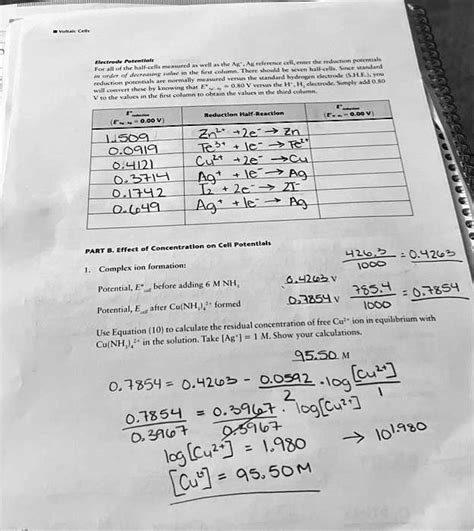 ■ Voltaic Cells
Electrode Potentials
For all of the half-cells measured as well as the Ag⁺, Ag reference cell, enter the reduction potentials
in order of decreasing value in the first column. There should be seven half-cells. Since standard
reduction potentials are normally measured versus the standard hydrogen electrode (S.H.E.), you
will convert these by knowing that E° = 0.80 V versus the H⁺, H₂ electrode. Simply add 0.80
V to the values in the first column to obtain the values in the third column.
E°reduction
(E°Ag⁺, Ag = 0.00 V)
Reduction Half-Reaction
E°reduction
= 0.00 V)
1.509 Zn²⁺ + 2e⁻ → Zn
0.0919 Fe³⁺ + 1e⁻ → Fe²⁺
0.4121 Cu²⁺ + 2e⁻ → Cu
0.3714 Ag⁺ + 1e⁻ → Ag
0.1742 I₂ + 2e⁻ → 2I⁻
0.649 Ag⁺ + 1e⁻ → Ag
PART B. Effect of Concentration on Cell Potentials
1. Complex ion formation:
426.3/1000 = 0.4263
Potential, E°cell before adding 6 M NH₃ 0.4263 V
Potential, Ecell after Cu(NH₃)₄²⁺ formed 0.7854 V
785.4/1000 = 0.7854
Use Equation (10) to calculate the residual concentration of free Cu²⁺ ion in equilibrium with
Cu(NH₃)₄²⁺ in the solution. Take [Ag⁺] = 1 M. Show your calculations.
95.50 M
0.7854 = 0.4263 - 0.0592/2 · log [Cu²⁺]/1
0.7854/0.3967 = 0.3967/0.3967 · log[Cu²⁺]
log[Cu²⁺] = 1.980 → 10^1.980
[Cu²⁺] = 95.50M